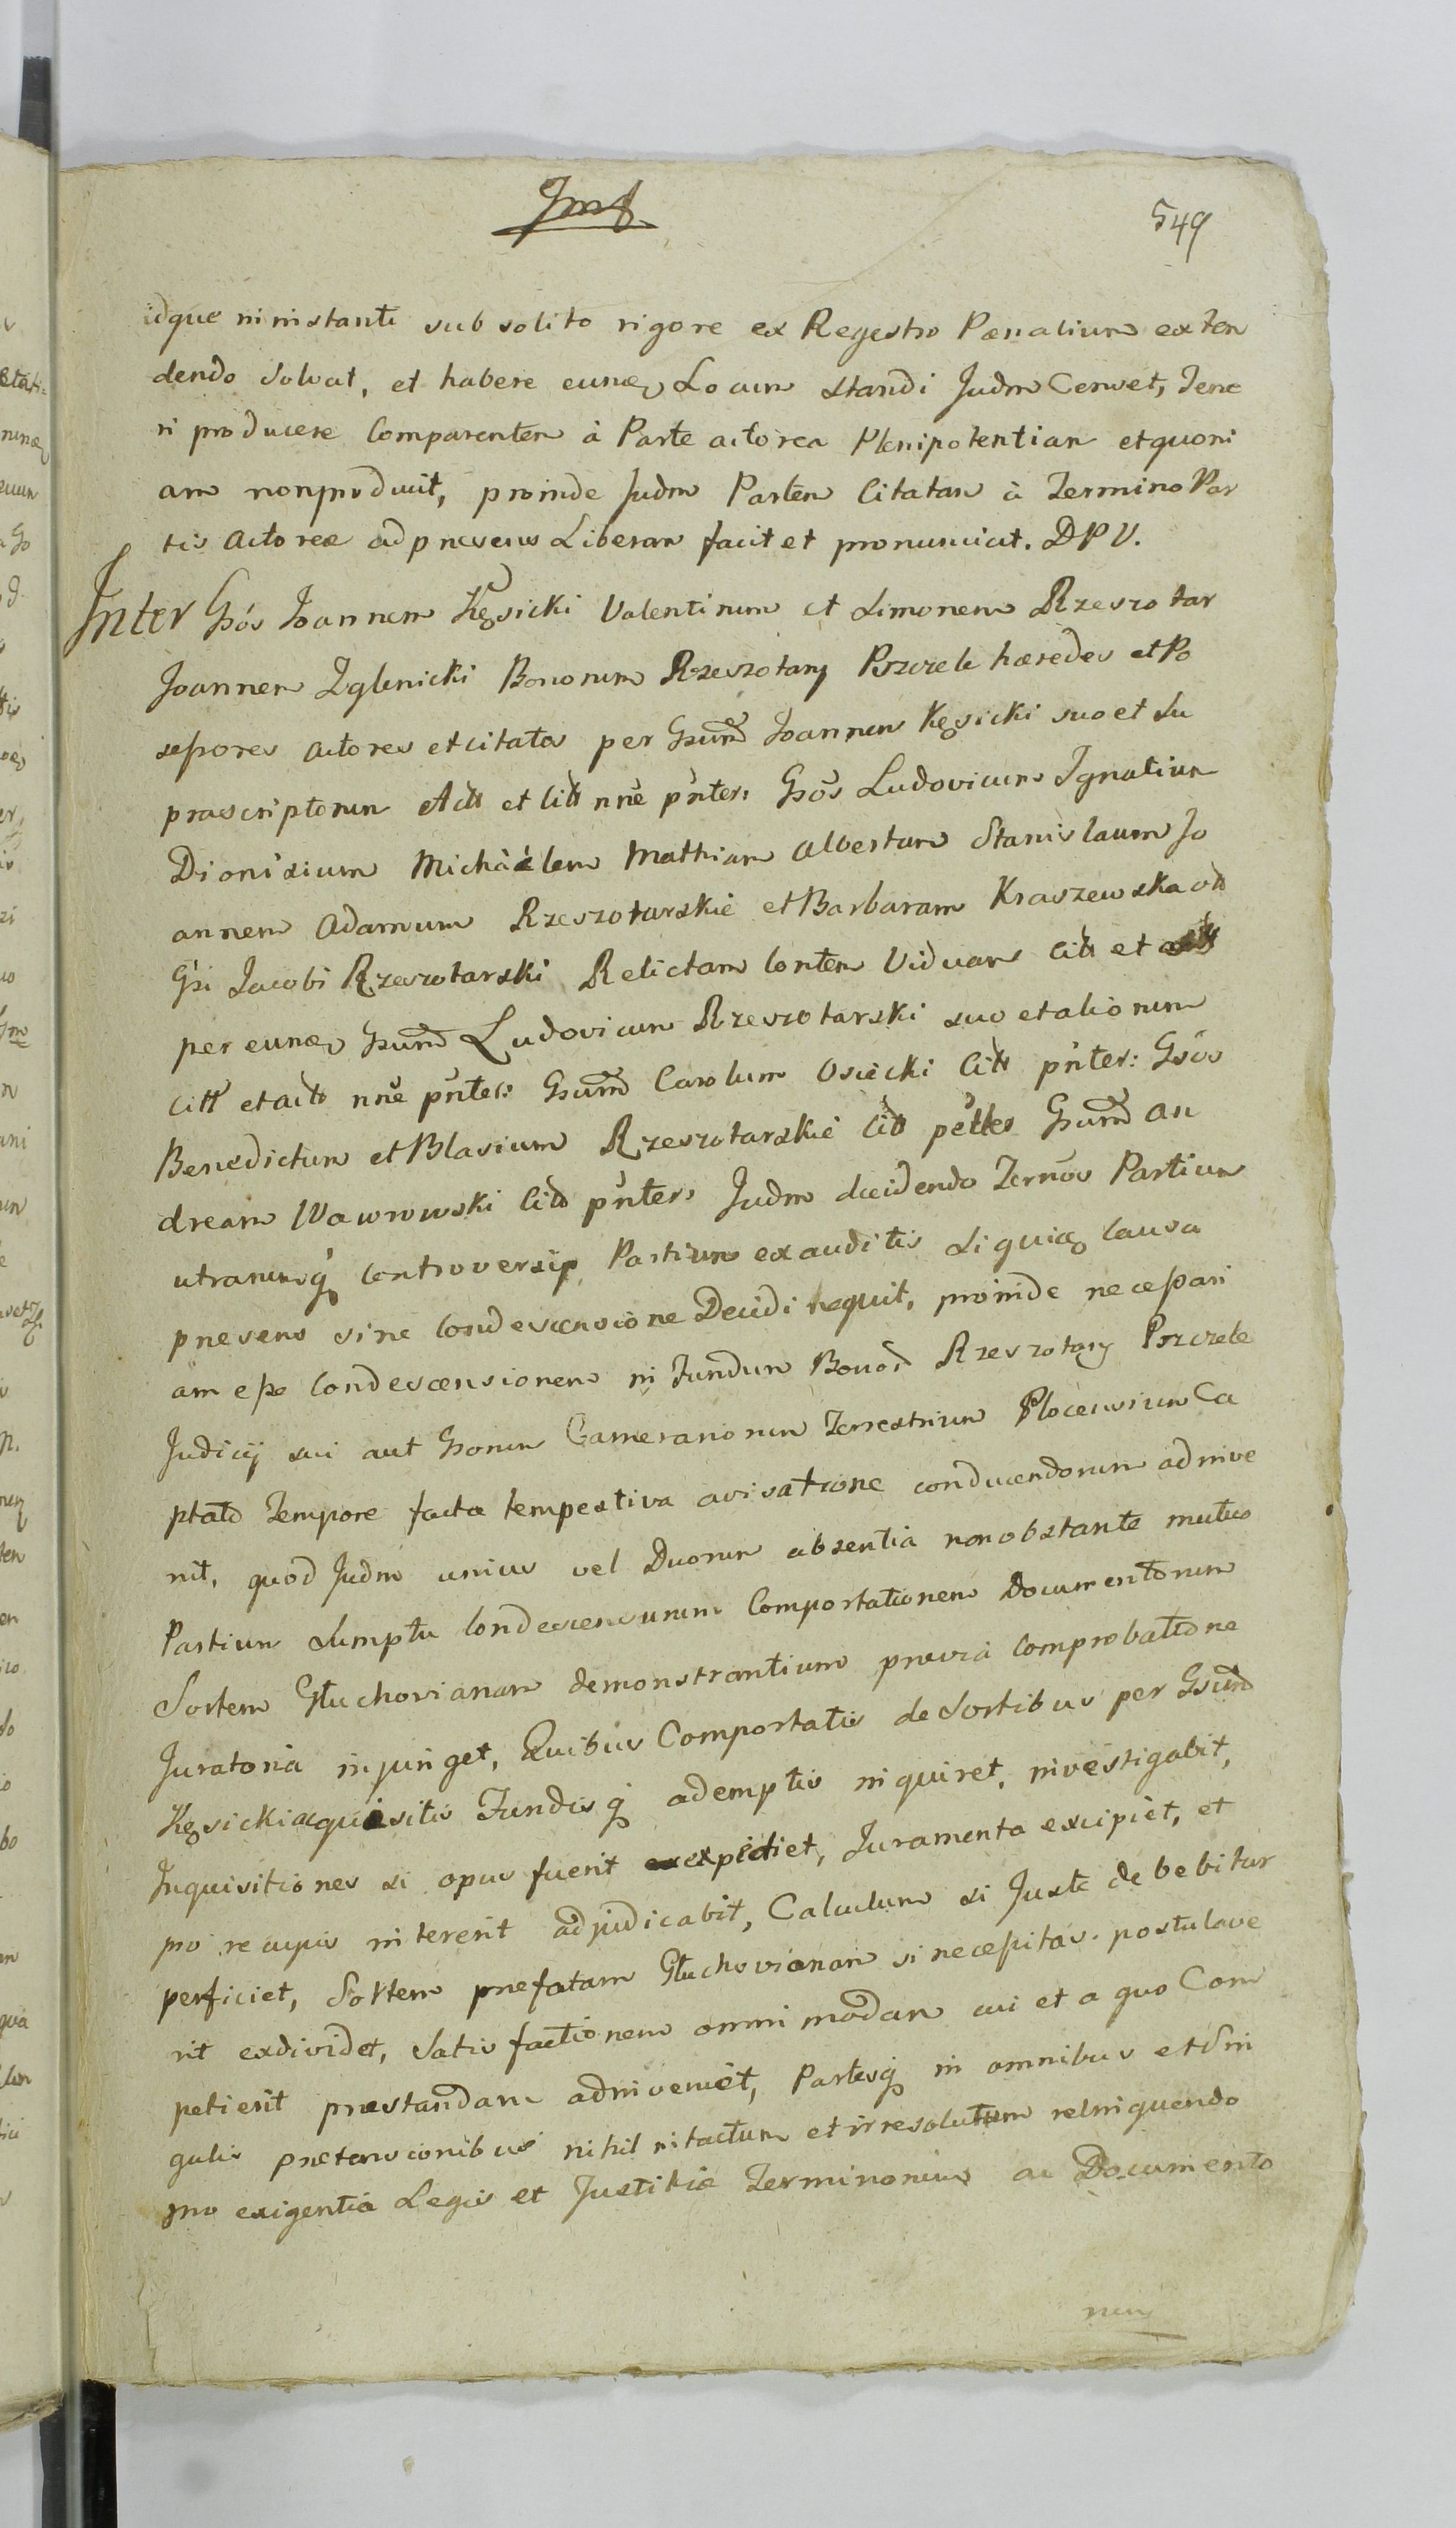 549
idque in instanti sub solito rigore ex Regestro Pœnalium exten
dendo solvat, et habere eunđ Locum standi Judm Censet, Tene
ri producere Comparentem à Parte actorea Plenipotentiam et quoni
am non produxit, proinde Judm Partem Citatam à Termino Par
tis Actoreæ ad præsens Liberam facit et pronunciat. DPV.
Inter Gsos Joannem Kęsicki Valentinum et Simonem Rzeszotar
Joannem Zglenicki Bonorum Rzeszotary Pszczele hæredes et Po
ssessores Actores et citatos per Gsum Joannem Kęsicki suo et su
præscriptorum Actt et Citt nne pnter: Gsos Ludovicum Ignatium
Dionisium Michäelem Mathiam Albertum Stanislaum Jo
annem Adamum Rzeszotarskie et Barbaram Kraszewska od
Gsi Jacobi Rzeszotarski Relictam Contem Viduam Citt et actt
per eund Gsum Ludovicum Rzeszotarski suo et aliorum
Citt et actt nne pnter: Gsum Carolum Osiecki Citt pnter: Gsos
Benedictum et Blasium Rzeszotarskie Citt Gsum An
dream Wawrowski Citt pnter: Judm decidendo Ternos Partium
utrarumq Controversijs Partium exauditis Siquid Causa
præsens sine Condescensione Decidi nequit, proinde necessari
am esse Condescensionem in Fundum Bonor Rzeszotary Pszczele
Judicij sui aut Gsorum Camerariorum Terrestrium Plocensium Ca
ptato Tempore facta tempestiva avisatione conducendorum adinve
nit, quod Judm unius vel Duorum absentia non obstante mutuo
Partium Sumptu Condescensurum Comportationem Documentorum
Sortem Głuchovianam demonstrantium prævia Comprobatione
Juratoria injunget, Quibus Comportatis de Sortibus per Gsum
Kęsicki acquisitis Fundisq ademptis inquiret, investigabit,
Inquisitiones si opus fuerit expediet, Juramenta excipiet, et
pro recupis intererit adjudicabit, Calculum si Juste debebitur
perficiet, Sortem præfatam Głuchovianam si necessitas postulave
rit exdividet, Satisfactionem omnimodam cui et a quo Com
petierit præstandam adinveniet, Partesq in omnibus et Sin
gulis prætensionibus nihil intactum et irresolutum relinquendo
pro exigentia Legis et Justitiæ Terminorum ac Documento
rum